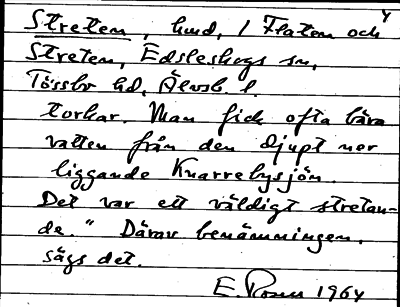 Streten, hmd, / Flaten och
Streten, Edsleskogs sn,
Tössbo hd, Älvsb. l.
torkar. Man fick ofta bära
vatten från den djupt ner
liggande Knarrebysjön.
Det var ett väldigt stretan-
de." Därav benämningen,
sägs det.
E. Rosen 1964